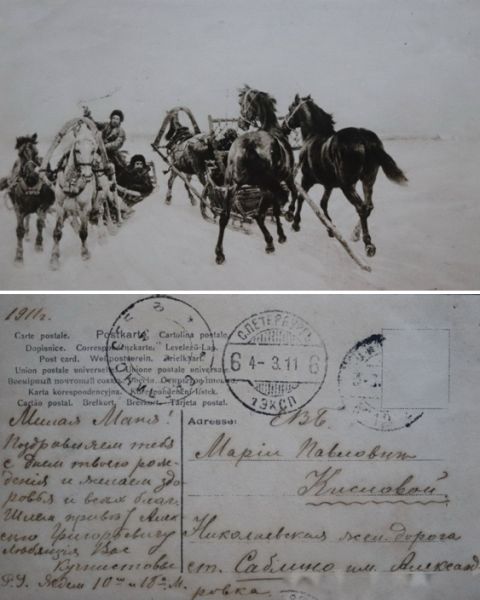 1911 г.
Carte postale. Postkarte. Cartolina postale.
Dopisnice. Correspondenzkarte. Levelező-Lap.
Post card. Weltpostverein. Briefkort.
Union postale universelle. Unione postale universale.
Всемірный почтовый союзъ. Россія.
Karta korespondencyjna. Korespondenční lístek.
Cartão postal. Brefkort. Brevkort. Tarjeta postal.
С.ПЕТЕРБУРГЪ
6 4-3.11 6
1 ЭКСП.
Милая Маня!
Поздравляем тебя
с днем твоего рож-
дения и желаем здо-
ровья и всех благ.
Шлем привет Алек
Григоровичу
Любящія Вас
Р.S. Ждем 10го и 10го М.
Adresse:
ЕВБ.
Маріи Павловне
Кисловой.
Николаевская жел. дорога
ст. Саблино им. Александ
ровка.